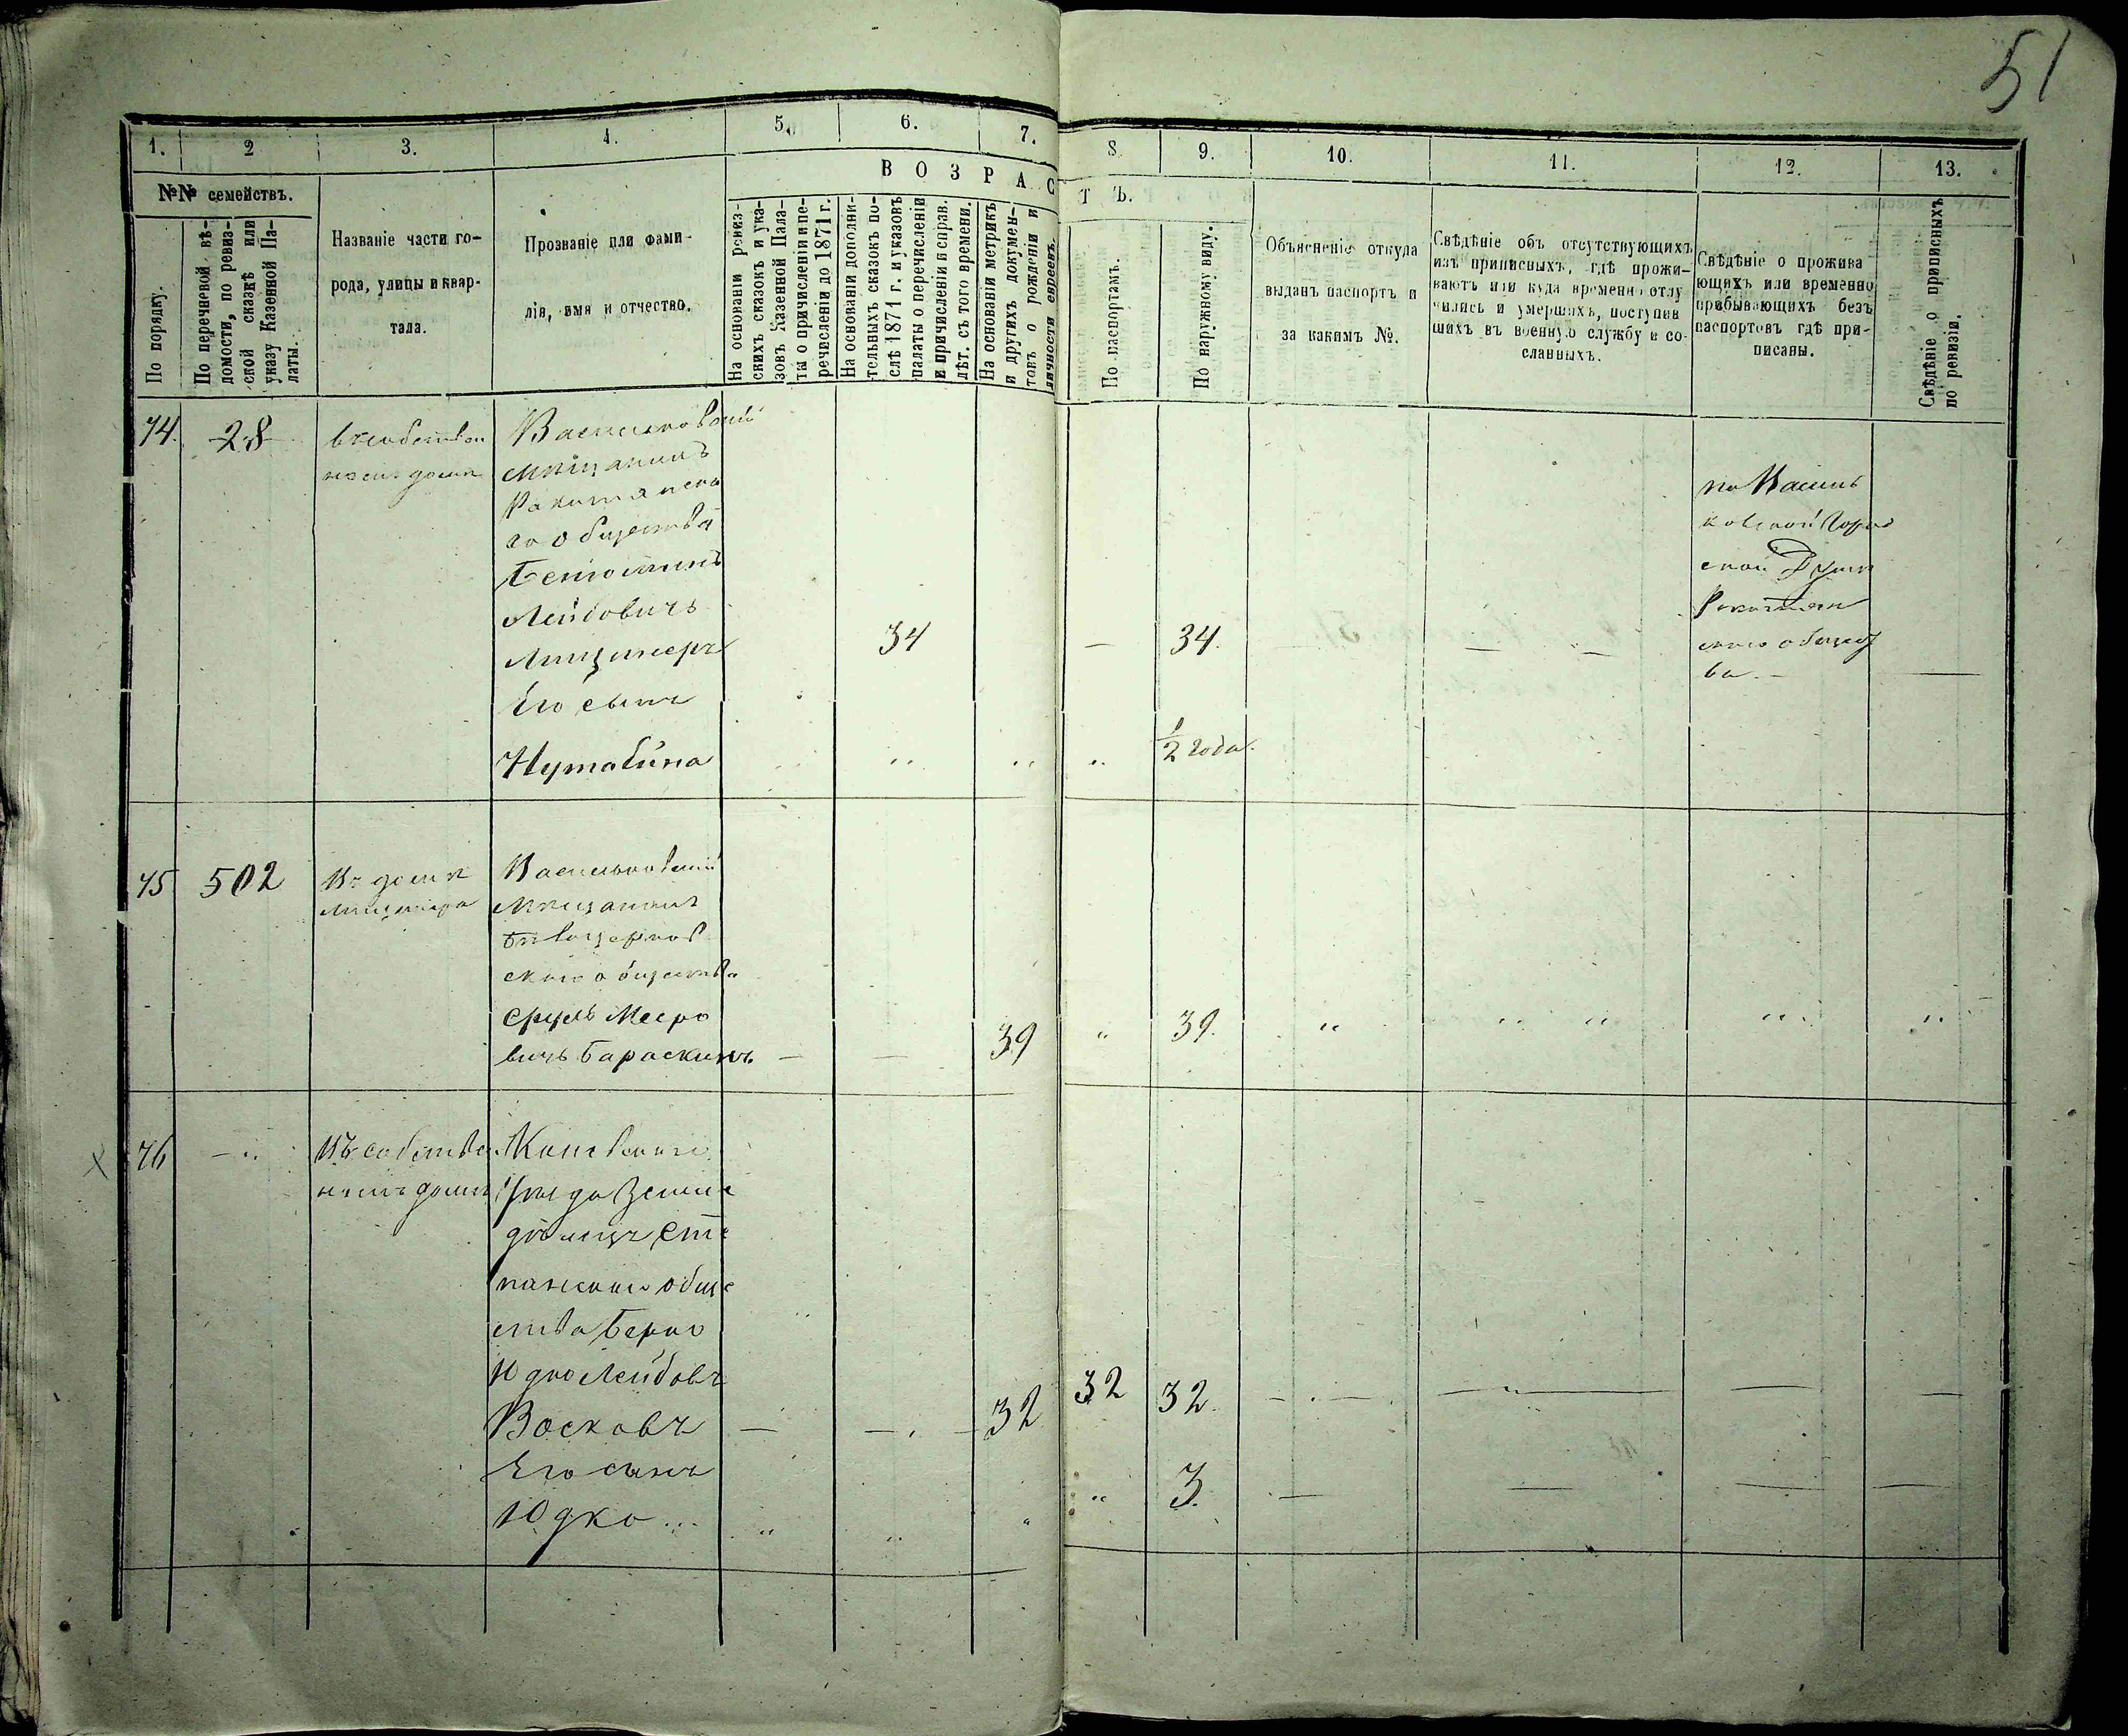 51
1. 2 3. 4. 5. 6. 7. 8. 9. 10. 11. 12. 13.
№№ семействъ.
В О З Р А С Т Ъ.
По порядку.
По перечневой вѣ-
домости, по ревиз-
ской сказкѣ или
указу Казенной Па-
латы.
Названіе части го-
рода, улицы и квар-
тала.
Прозваніе или фами-
лія, имя и отчество.
На основаніи ревиз-
скихъ сказокъ и ука-
зовъ Казенной Пала-
ты о причисленіи и пе-
речисленіи до 1871 г.
На основаніи дополни-
тельныхъ сказокъ по-
слѣ 1871 г. и указовъ
палаты о перечисленіи
и причисленіи и справ.
лѣт. съ того времени.
На основаніи метрикъ
и другихъ докумен-
товъ о рожденіи и
личности евреевъ.
По паспортамъ.
По наружному виду.
Объясненіе откуда
выданъ паспортъ и
за какимъ №.
Свѣдѣніе объ отсутствующихъ
изъ приписныхъ, гдѣ прожи-
ваютъ или куда временно отлу
чились и умершихъ, поступив
шихъ въ военную службу и со-
сланныхъ.
Свѣдѣніе о прожива
ющихъ или временно
пребывающихъ безъ
паспортовъ гдѣ при-
писаны.
Свѣдѣніе о приписныхъ
по ревизіи.
74. 28
въ собствен
номъ домѣ
Васильковскій
мѣщанинъ
Ракитянска
го общества
Бенюминъ
Лейбовичъ
Лицинеръ
34 — 34. — — —
Его сынъ
Нута
1/2 года.
по Василь
ковской Город
ской Думѣ
Ракитян
скаго общест
ва. —
75 502
Въ домѣ
Лицинера
Васильковскій
мѣщанинъ
Бѣлоцерков
скаго общества
Сруль Мееро
вичъ Бараскинъ — — 39 " 39. " " " " "
76 — "
Въ собствен
номъ домѣ
Кіевскаго
уѣзда Земле
дѣлецъ Сте
панскаго обще
ства Берко
Юдко Лейбовъ
Восковъ — — 32 32 32. — — — —
Его сынъ
Юдко... " " " " 3. — — — —